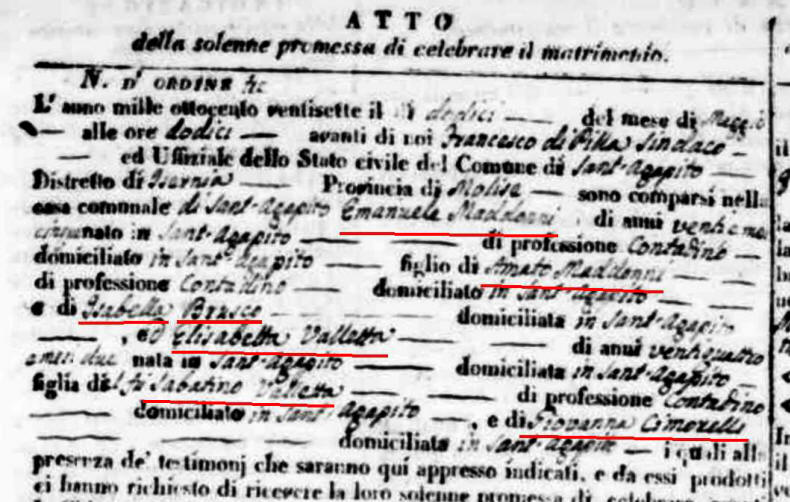 ATTO
della solenne promessa di celebrare il matrimonio.
N. D' ORDINE
L' anno mille ottocento ventisette il dodici del mese di Maggio
alle ore dodici avanti di noi Francesco di Pilla Sindaco
ed Uffiziale dello Stato civile del Comune di Sant-Agapito
Distretto di Isernia Provincia di Molise sono comparsi nella
casa comunale di Sant-Agapito Emanuele Maddonni di anni
nato in Sant-Agapito di professione Contadino
domiciliato in Sant-Agapito figlio di Amato Maddonni
di professione Contadino domiciliato in Sant-Agapito
e di Isabella Brusco domiciliata in Sant-Agapito
, ed Elisabetta Valletta di anni ventiquattro
nata in Sant-Agapito domiciliata in Sant-Agapito
figlia del fu Sabatino Valletta di professione Contadino
domiciliato in Sant'Agapito , e di Giovanna Cimorelli
domiciliata in Sant-Agapito i quali alla
presenza de' testimonj che saranno qui appresso indicati, e da essi prodotti
ci hanno richiesto di ricevere la loro solenne promessa di celebrare